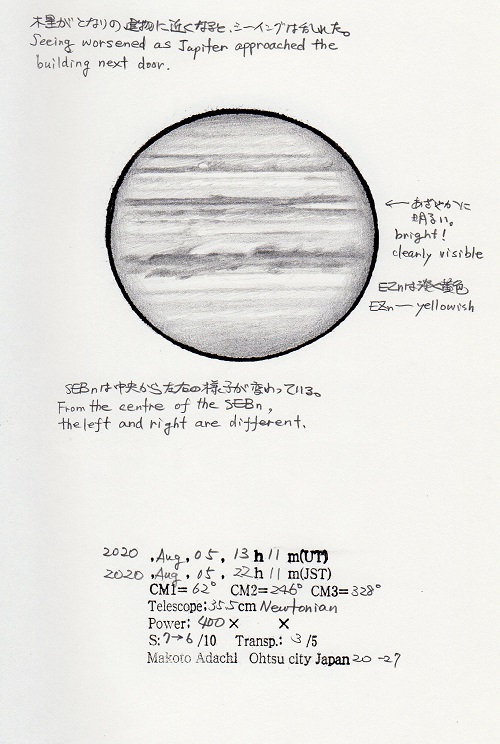 木星がとなりの建物に近くなると、シーイングは乱れた。
Seeing worsened as Jupiter approached the
building next door.
← あざやかに
明るい。
bright!
clearly visible
EZnは淡く黄色
EZn — yellowish
SEBnは中央から左右の様子が変わっている。
From the centre of the SEBn,
the left and right are different.
2020 , Aug , 05 , 13 h 11 m(UT)
2020 , Aug , 05 , 22 h 11 m(JST)
CM1= 62° CM2= 246° CM3= 328°
Telescope; 35.5cm Newtonian
Power; 400 × ×
S: 7→6 /10 Transp.; 3 /5
Makoto Adachi Ohtsu city Japan 20 -27